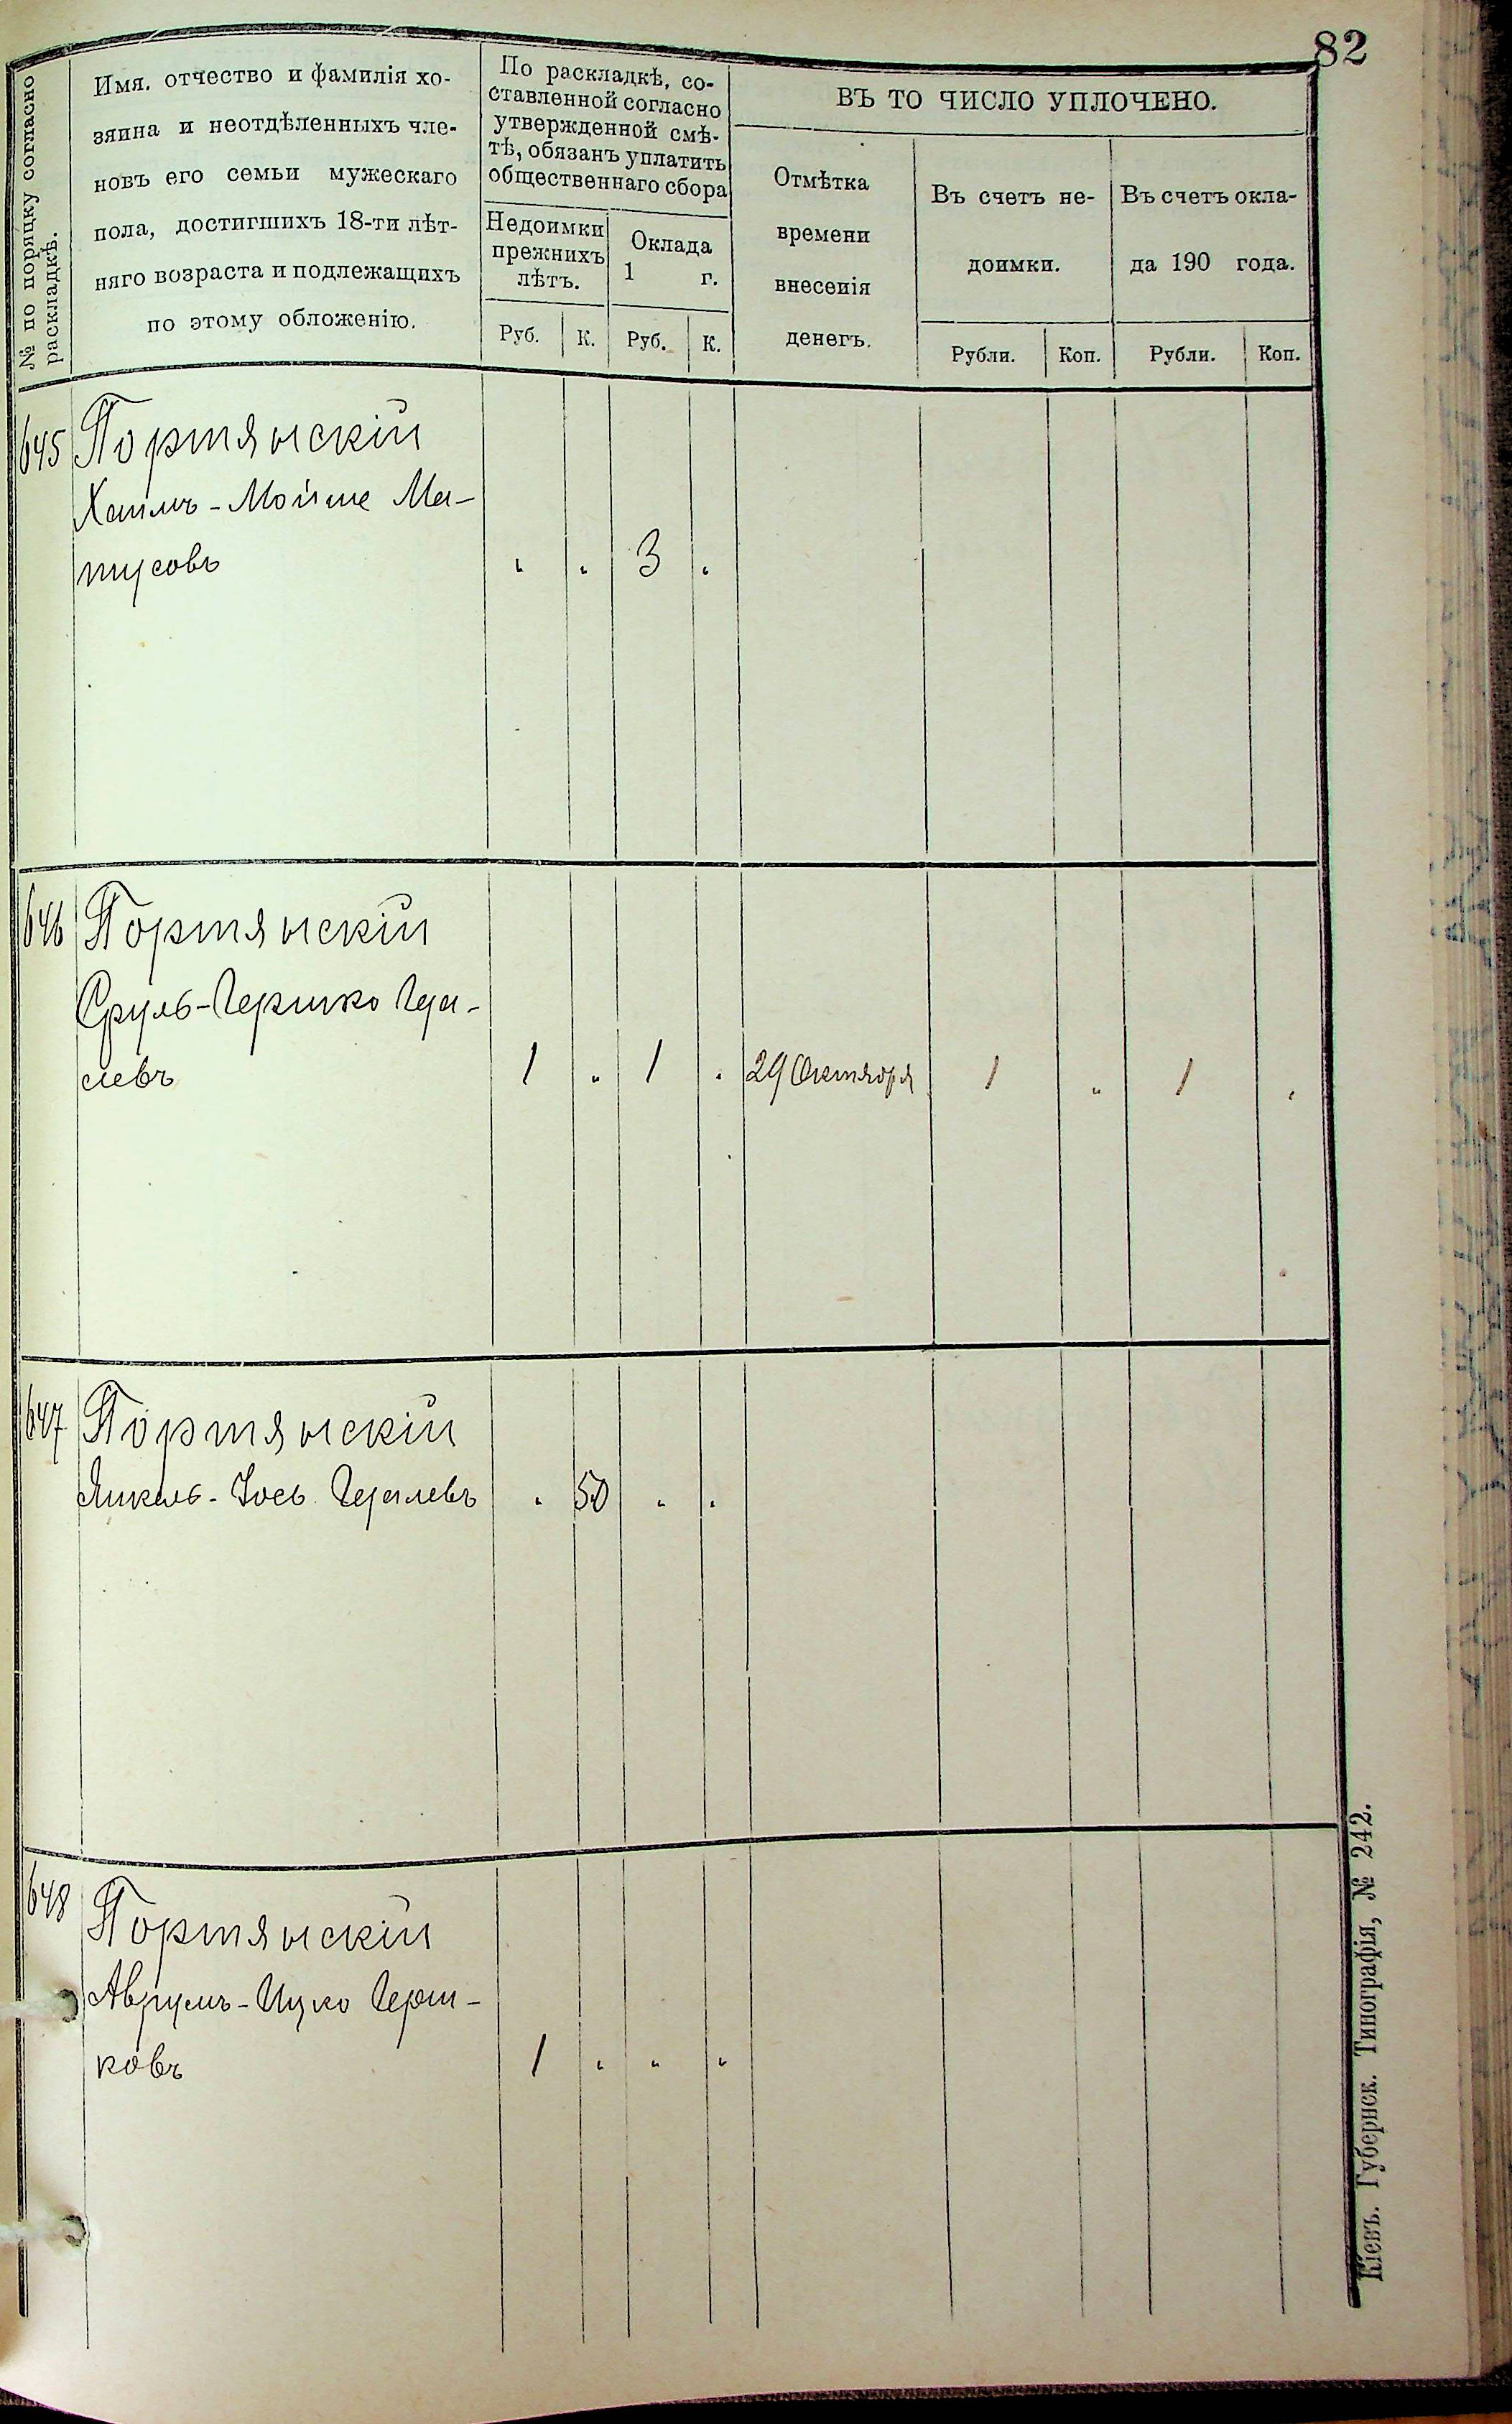 82
№ по порядку согласно
раскладкѣ.
Имя, отчество и фамилія хо-
зяина и неотдѣленныхъ чле-
новъ его семьи мужескаго
пола, достигшихъ 18-ти лѣт-
няго возраста и подлежащихъ
по этому обложенію.
По раскладкѣ, со-
ставленной согласно
утвержденной смѣ-
тѣ, обязанъ уплатить
общественнаго сбора
Недоимки
прежнихъ
лѣтъ.
Оклада
1 г.
Руб. К. Руб. К.
ВЪ ТО ЧИСЛО УПЛОЧЕНО.
Отмѣтка
времени
внесенія
денегъ.
Въ счетъ не-
доимки.
Въ счетъ окла-
да 190 года.
Рубли. Коп. Рубли. Коп.
645 Портянскій
Хаимъ-Мойше Ма-
тусовъ „ „ 3 „
646 Портянскій
Сруль-Гершко Гда-
левъ 1 „ 1 „ 29 Октября 1 „ 1 „
647 Портянскій
Янкель-Іось Гдалевъ „ 50 „ „
648 Портянскій
Аврумъ-Ицко Герш-
ковъ 1 „ „ „
Кіевъ. Губернск. Типографія, № 242.